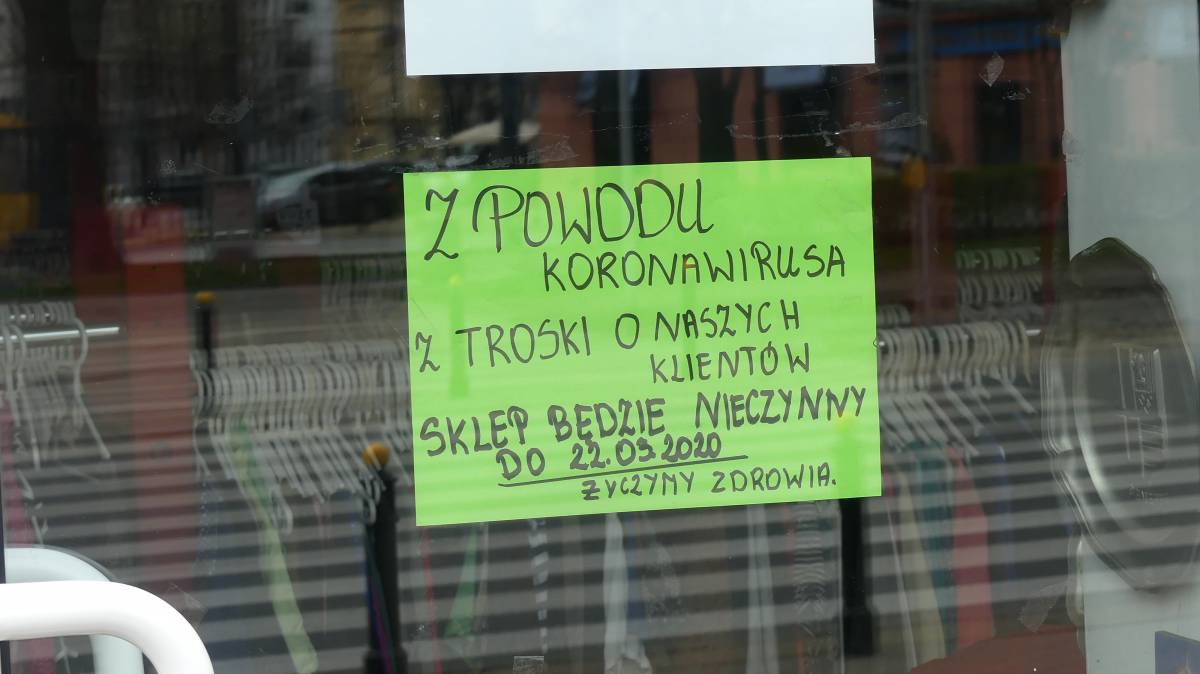 Z POWODU
KORONAWIRUSA
Z TROSKI O NASZYCH
KLIENTÓW
SKLEP BĘDZIE NIECZYNNY
DO 22.03.2020
ŻYCZYMY ZDROWIA.